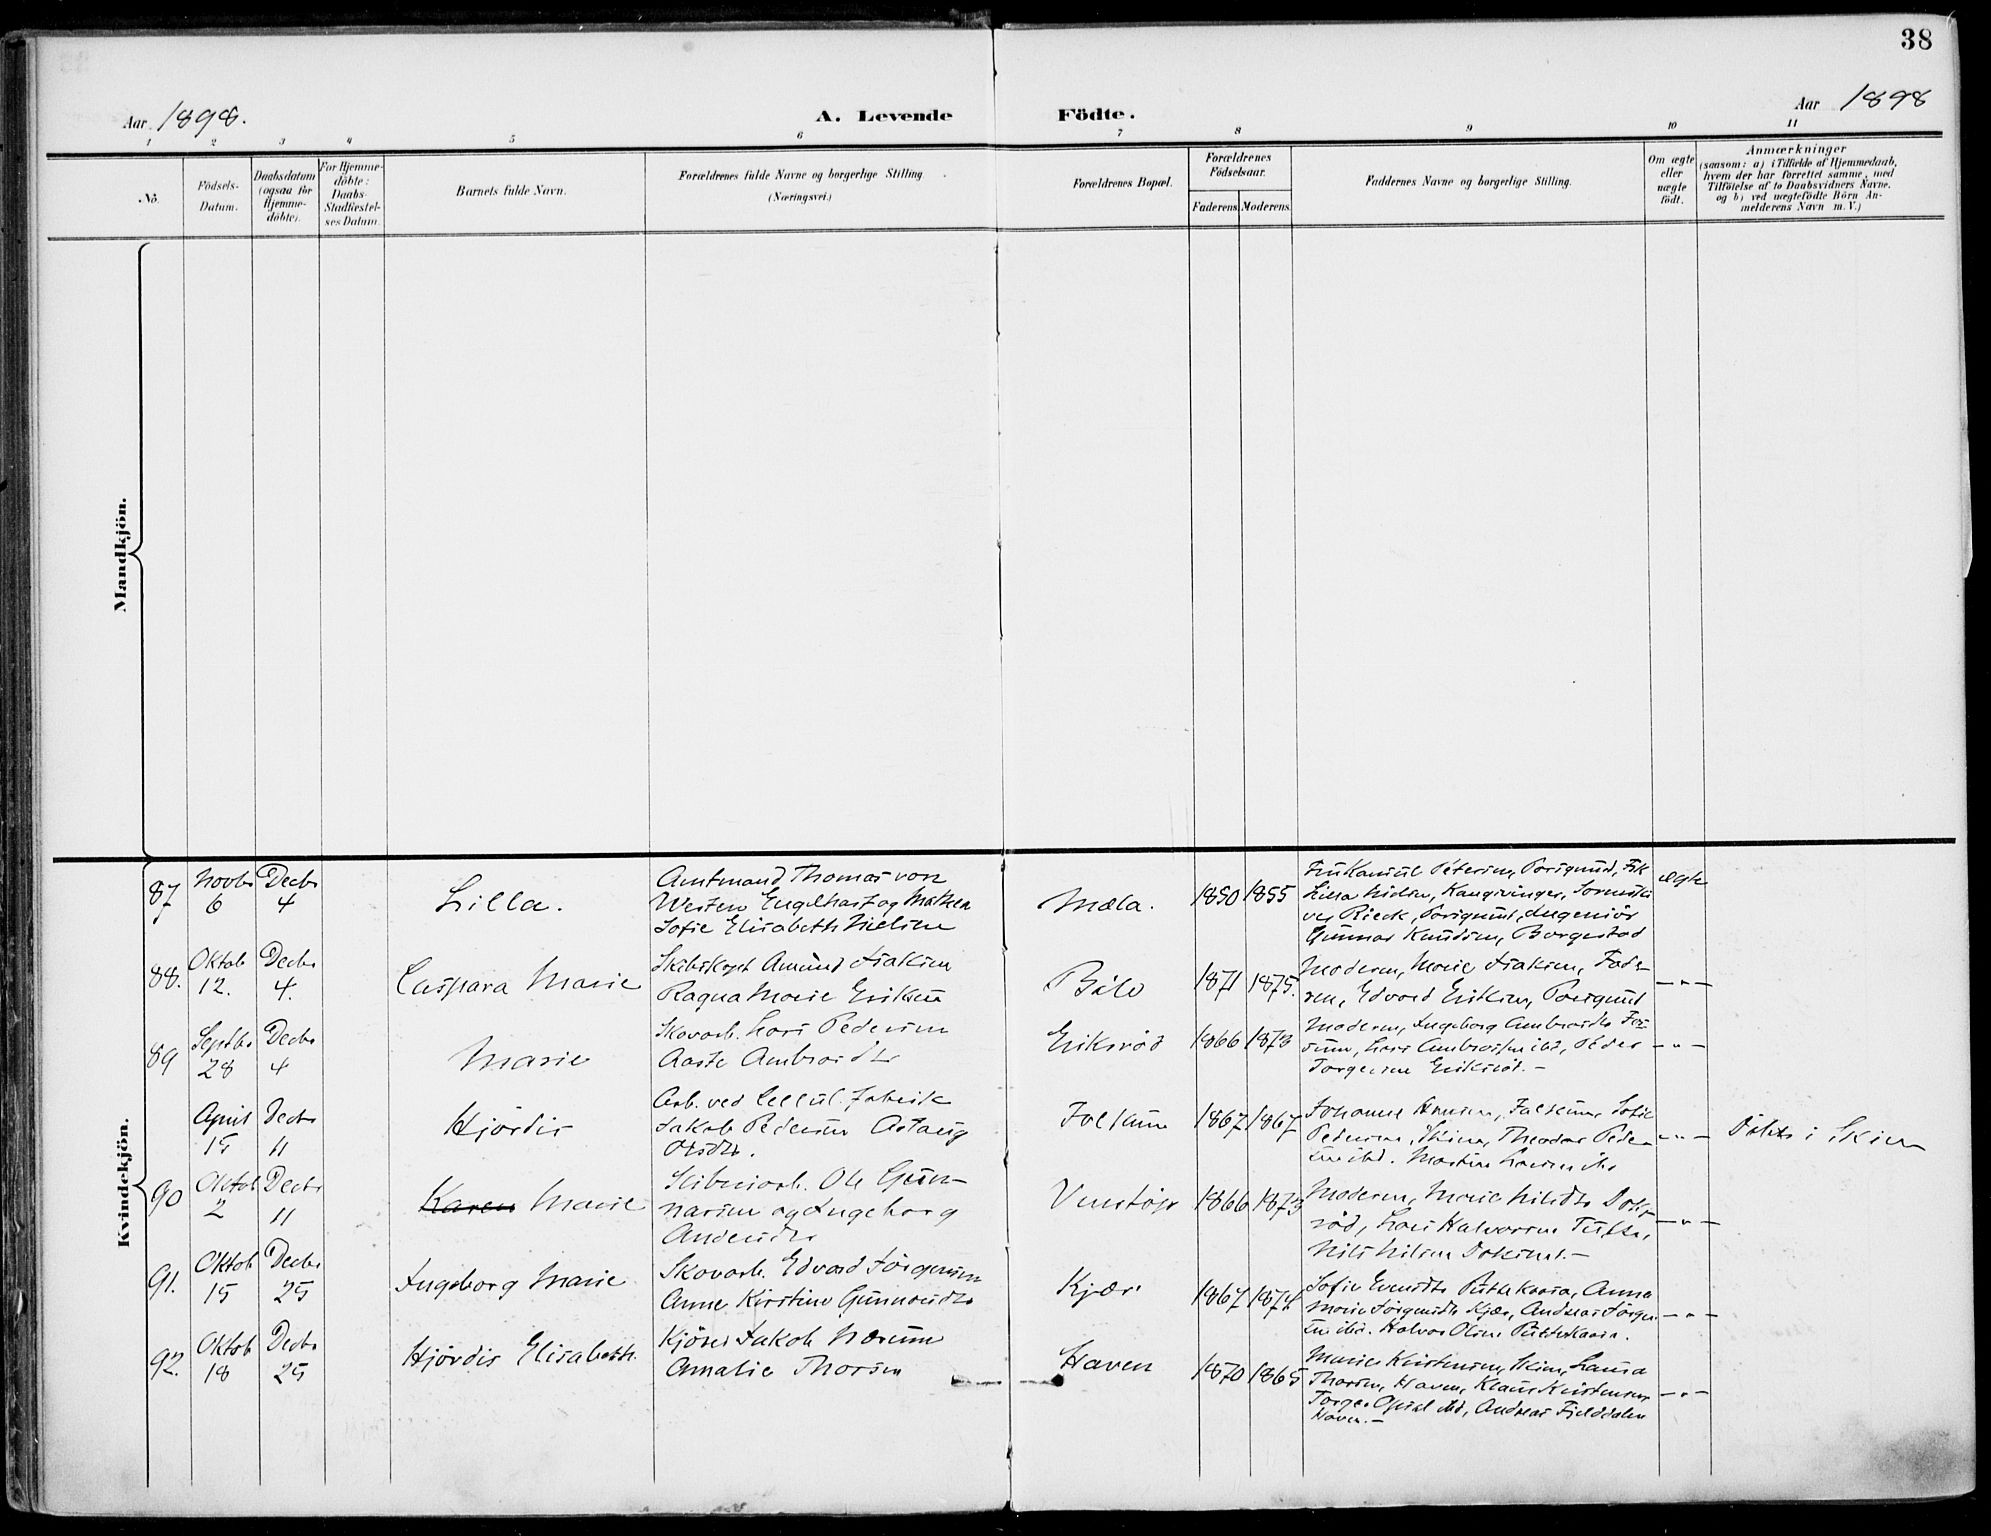 38
Aar 1898.
A. Levende Födte.
Aar 1898
1 2 3 4 5 6 7 8 9 10 11
No.
Födsels-
Datum.
Daabsdatum
(ogsaa for
Hjemme-
döbte).
For Hjemme-
döbte:
Daabs-
Stadfæstel-
ses Datum.
Barnets fulde Navn.
Forældrenes fulde Navne og borgerlige Stilling
(Næringsvei.)
Forældrenes Bopæl.
Forældrenes
Födselsaar.
Faderens. Moderens.
Faddernes Navne og borgerlige Stilling.
Om ægte
eller
uægte
født.
Anmærkninger
(saasom: a) i Tilfælde af Hjemmedaab,
hvem der har forrettet samme, med
Tilföielse af to Daabsvidners Navne.
og b) ved uægtefödte Börn An-
melderens Navn m. V.)
Mandkjön.
Kvindekjön.
87
Novbr
6
Decbr
4
Lilla.
Amtmand Thomas von
Westen Engelhart og Mathea
Sofie Elisabeth Nielsen
Mæla.
1850 1855
Petersen, Porsgrund,
Kongsvinger,
Rieck, Porsgrund, Ingeniör
Gunnar Knudsen, Borgestad
ægte
88.
Oktob
12.
Decbr
4.
Caspara Marie
Skibskapt Amund Isaksen
Ragna Marie Eriksen
1871 1875.
Moderen, Marie Isaksen, Fade-
ren, Edvard Eriksen, Porsgrund
— " —
89
Septbr
28
Decbr
4
Marie
Skovarb. Lars Pedersen
Aaste Ambrosdtr
Eriksröd
1866 1873
Moderen, Ingeborg Ambrosdtr
Lars Ambrosen ibd, Peder
Torgersen Eriksröd. —
— " —
April
15
Decbr
11
Hjördis
Arb. ved Cellul. fabrik
Jakob Pedersen Aslaug
Olsdtr.
Folkum
1867 1867
Johanne Hansen, Sofie
Pedersen, Skien, Theodor Peder-
sen ibd. Martin Larsen ibd
— " —
Döbt i Skien
90
Oktob
2
Decbr
11
Karen Marie
Ole Gun-
narsen og Ingeborg
Andersdtr
Venstöp
1866 1873
Moderen, Marie Nilsdtr
röd, Lars Halvorsen Tufte,
Nils Nilsen
— " —
91.
Oktob
15
Decbr
25
Ingeborg Marie
Skovarb. Edvard Jörgensen
Anne Kirstine Gunnarsdtr
Kjær
1867 1874
Sofie Anna
Marie Jörgensdtr Kjær, Andreas Jörgen-
sen ibd. Halvor Olsen
— " —
92.
Oktob
18
Decbr
25
Hjördis Elisabeth.
Kjörer Jakob
Amalie Thorsen
Haven
1870 1865
Marie Kristensen, Skien, Laura
Thorsen, Haven, Klaus Kristensen
ibd, Andreas Fjelddalen
Haven. —
— " —